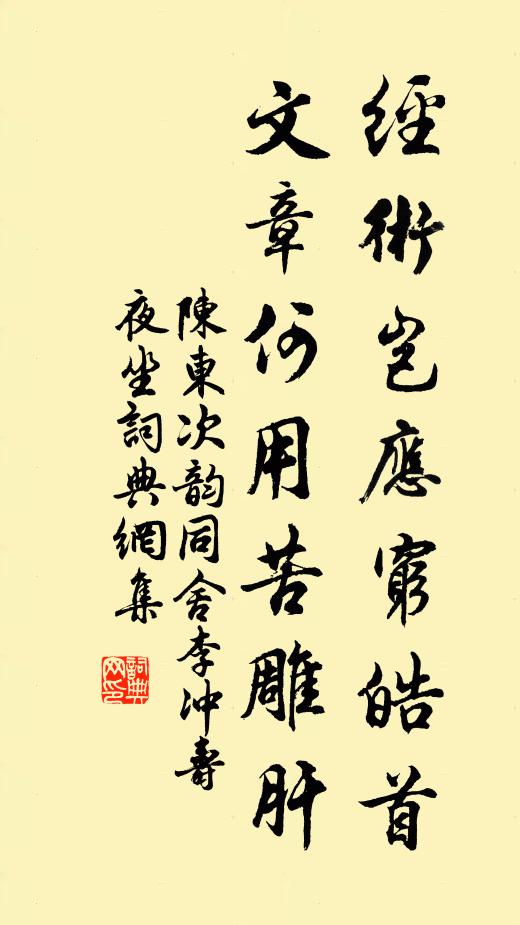 經術豈應窮皓首
文章何用苦雕肝
陳東次韵同舍李冲壽
夜坐詞典網集
詞典網印